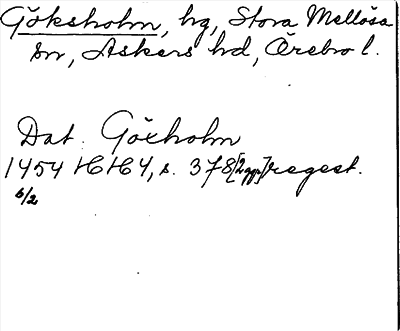 Göksholm, hg, Stora Mellösa
sn, Askers hd, Örebro l.
Dat. Göxholm
1454 HH 4, s. 378 [2 ggr] regest.
6/2